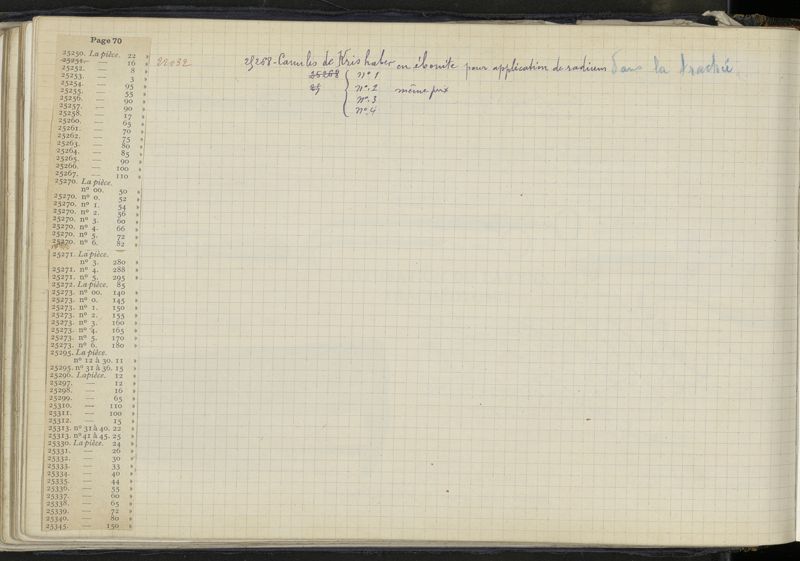 Page 70
25250. La pièce. 22 »
25251. — 16 » 22032
25252. — 8 »
25253. — 3 »
25254. — 95 »
25255. — 55 »
25256. — 90 »
25257. — 90 »
25258. — 17 »
25260. — 65 »
25261. — 70 »
25262. — 75 »
25263. — 80 »
25264. — 85 »
25265. — 90 »
25266. — 100 »
25267. — 110 »
25270. La pièce.
nº 00. 50 »
25270. nº 0. 52 »
25270. nº 1. 54 »
25270. nº 2. 56 »
25270. nº 3. 60 »
25270. nº 4. 66 »
25270. nº 5. 72 »
25270. nº 6. 82 »
25271. La pièce.
nº 3. 280 »
25271. nº 4. 288 »
25271. nº 5. 295 »
25272. La pièce. 85 »
25273. nº 00. 140 »
25273. nº 0. 145 »
25273. nº 1. 150 »
25273. nº 2. 155 »
25273. nº 3. 160 »
25273. nº 4. 165 »
25273. nº 5. 170 »
25273. nº 6. 180 »
25295. La pièce.
nº 12 à 30. 11 »
25295. nº 31 à 36. 15 »
25296. La pièce. 12 »
25297. — 12 »
25298. — 16 »
25299. — 65 »
25310. — 110 »
25311. — 100 »
25312. — 15 »
25313. nº 31 à 40. 22 »
25313. nº 41 à 45. 25 »
25330. La pièce. 24 »
25331. — 26 »
25332. — 30 »
25333. — 33 »
25334. — 40 »
25335. — 44 »
25336. — 55 »
25337. — 60 »
25338. — 65 »
25339. — 72 »
25340. — 80 »
25345. — 150 »
25268 - Canules de Krishaber en ébonite pour application de radium dans la trachée
25268 nº 1
25 nº 2 même prix
nº 3
nº 4